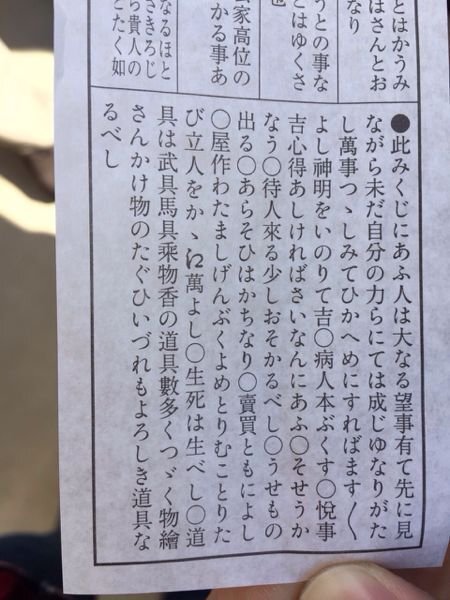 とはかうみ
はさんとお
なり
うとの事な
とはゆくさ
也
公家高位の
かる事あ
なるほと
さきろじ
ら貴人の
とたく如
●此みくじにあふ人は大なる望事有て先に見
ながら未だ自分の力らにては成じゆなりがた
し萬事つゝしみてひかへめにすればます〱
吉心得あしければさいなんにあふ〇そせうか
よし神明をいのりて吉〇病人本ぷくす〇悅事
なう〇待人來る少しおそかるべし〇うせもの
出る〇あらそひはかちなり〇賣買ともによし
〇屋作わたましげんぶくよめとりむことりた
び立人をかゝに萬よし〇生死は生べし〇道
具は武具馬具乘物香の道具數多くつゞく物繪
さんかけ物のたぐひいづれもよろしき道具な
るべし